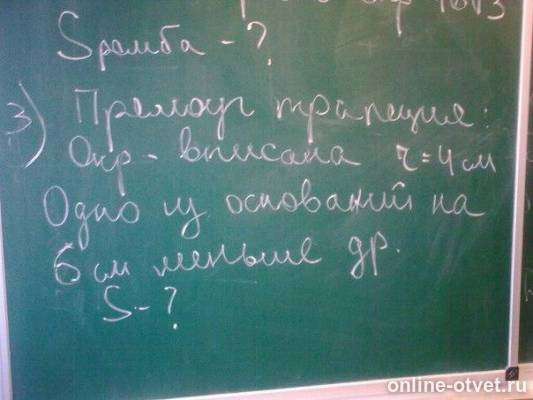 Sромба - ?
3) Прямоуг трапеция:
Окр - вписана r = 4 см
Одно из оснований на
6 см меньше др.
S - ?
online-otvet.ru